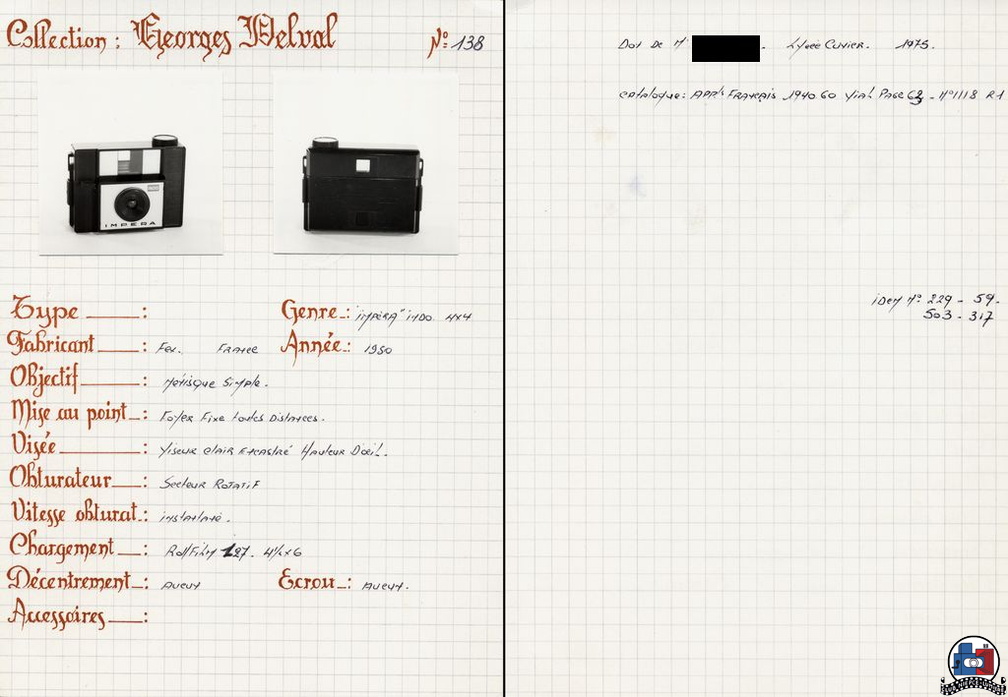 Collection : Georges Delval
N°: 138
IMPERA
Type :
Genre : "IMPERA" INDO 4X4
Fabricant : Fex. France
Année : 1950
Objectif : Ménisque Simple.
Mise au point : Foyer Fixe toutes Distances.
Visée : Viseur clair Encastré Hauteur D'œil.
Obturateur : Secteur Rotatif
Vitesse obturat : instantané.
Chargement : RollFilm 127. 4½x6
Décentrement : Aucun
Ecrou : Aucun.
Accessoires :
Don De M . Lycée Cuvier. 1975.
Catalogue: APP'S Français 1940 60 Vial Page 62 - N°1118 R1
idem N° 229 - 59.
503 - 317